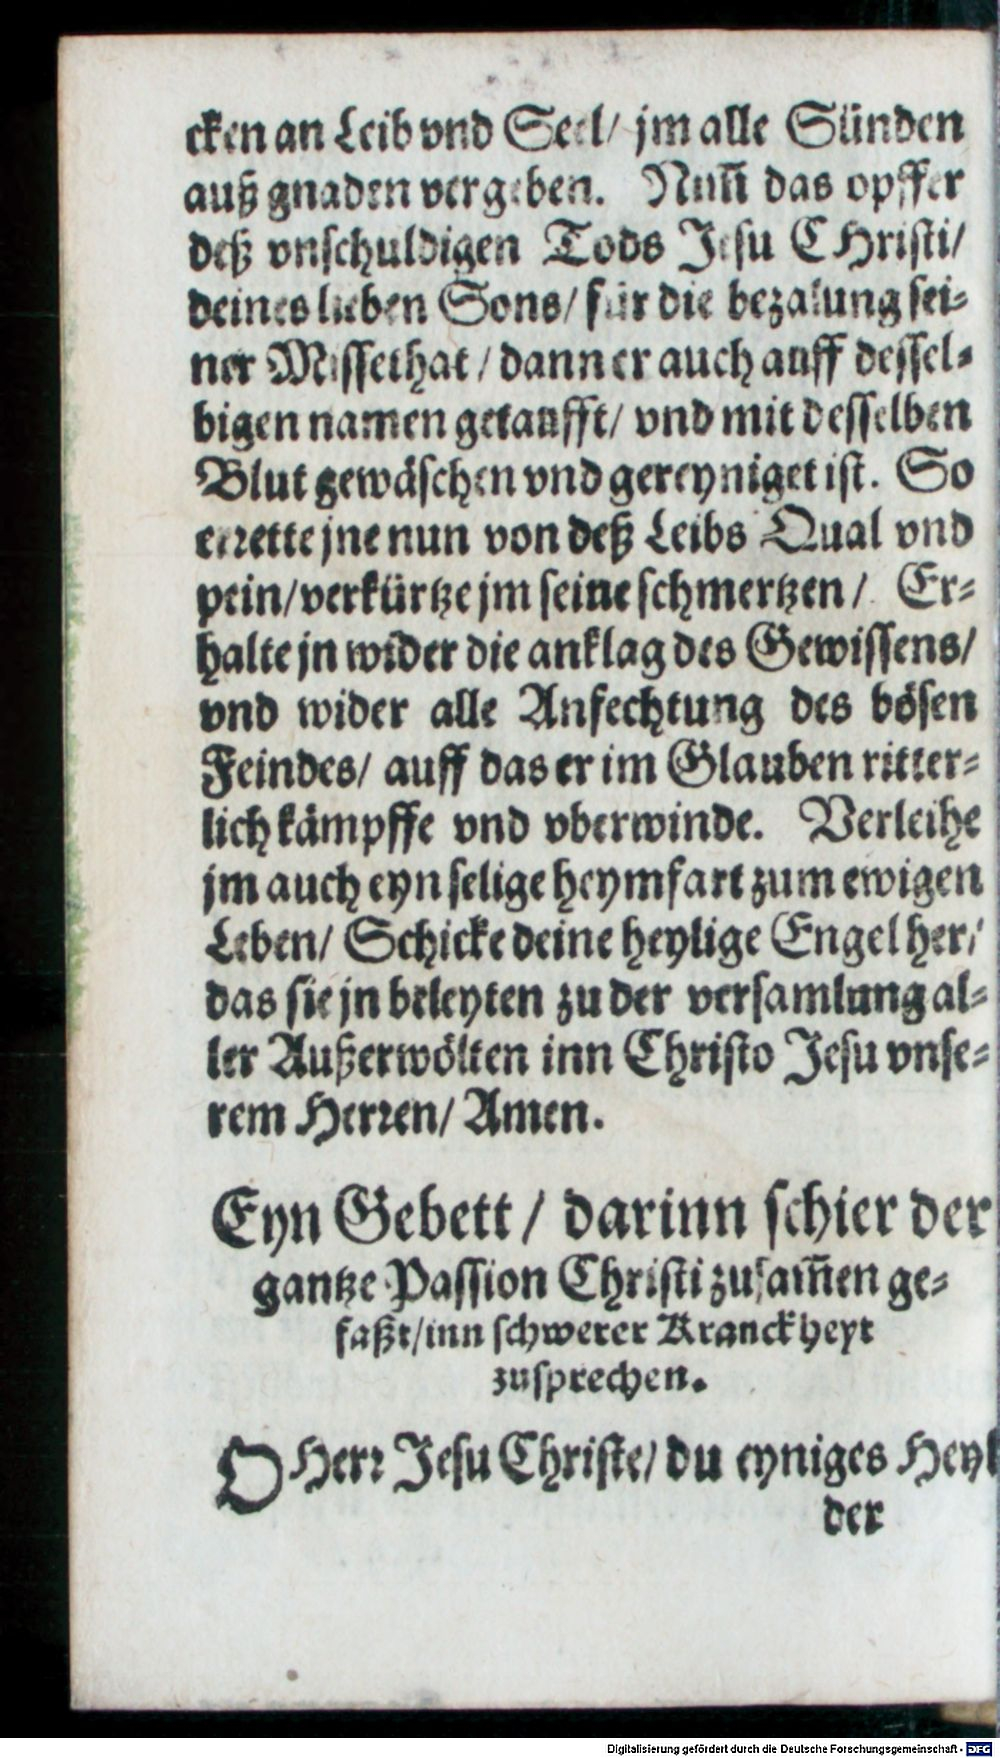 cken an Leib vnd Seel/ jm alle Sünden
auß gnaden vergeben. Nim̃ das opffer
deß vnschuldigen Tods Jesu CHristi/
deines lieben Sons/ für die bezalung sei-
ner Missethat / dann er auch auff dessel-
bigen namen getaufft/ vnd mit desselben
Blut gewäschen vnd gereyniget ist. So
errette jne nun von deß Leibs Qual vnd
pein/ verkürtze jm seine schmertzen / Er-
halte jn wider die anklag des Gewissens/
vnd wider alle Anfechtung des bösen
Feindes/ auff das er im Glauben ritter-
lich kämpffe vnd vberwinde. Verleihe
jm auch eyn selige heymfart zum ewigen
Leben/ Schicke deine heylige Engel her/
das sie jn beleyten zu der versamlung al-
ler Außerwölten inn Christo Jesu vnse-
rem Herren/ Amen.
Eyn Gebett / darinn schier der
gantze Passion Christi zusam̃en ge-
faßt/ inn schwerer Kranckheyt
zusprechen.
O Herr Jesu Christe/ du eyniges Heyl
der
Digitalisierung gefördert durch die Deutsche Forschungsgemeinschaft - DFG